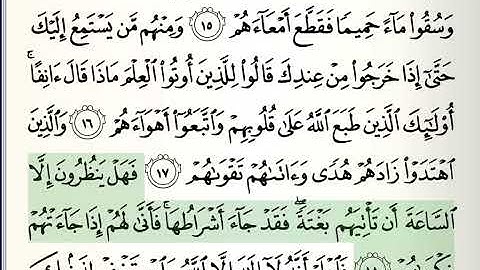 وَسُقُوا۟ مَآءً حَمِيمًا فَقَطَّعَ أَمْعَآءَهُمْ ١٥ وَمِنْهُم مَّن يَسْتَمِعُ إِلَيْكَ
حَتَّىٰٓ إِذَا خَرَجُوا۟ مِنْ عِندِكَ قَالُوا۟ لِلَّذِينَ أُوتُوا۟ ٱلْعِلْمَ مَاذَا قَالَ ءَانِفًا ۚ
أُو۟لَـٰٓئِكَ ٱلَّذِينَ طَبَعَ ٱللَّهُ عَلَىٰ قُلُوبِهِمْ وَٱتَّبَعُوٓا۟ أَهْوَآءَهُمْ ١٦ وَٱلَّذِينَ
ٱهْتَدَوْا۟ زَادَهُمْ هُدًى وَءَاتَىٰهُمْ تَقْوَىٰهُمْ ١٧ فَهَلْ يَنظُرُونَ إِلَّا
ٱلسَّاعَةَ أَن تَأْتِيَهُم بَغْتَةً ۖ فَقَدْ جَآءَ أَشْرَاطُهَا ۚ فَأَنَّىٰ لَهُمْ إِذَا جَآءَتْهُمْ